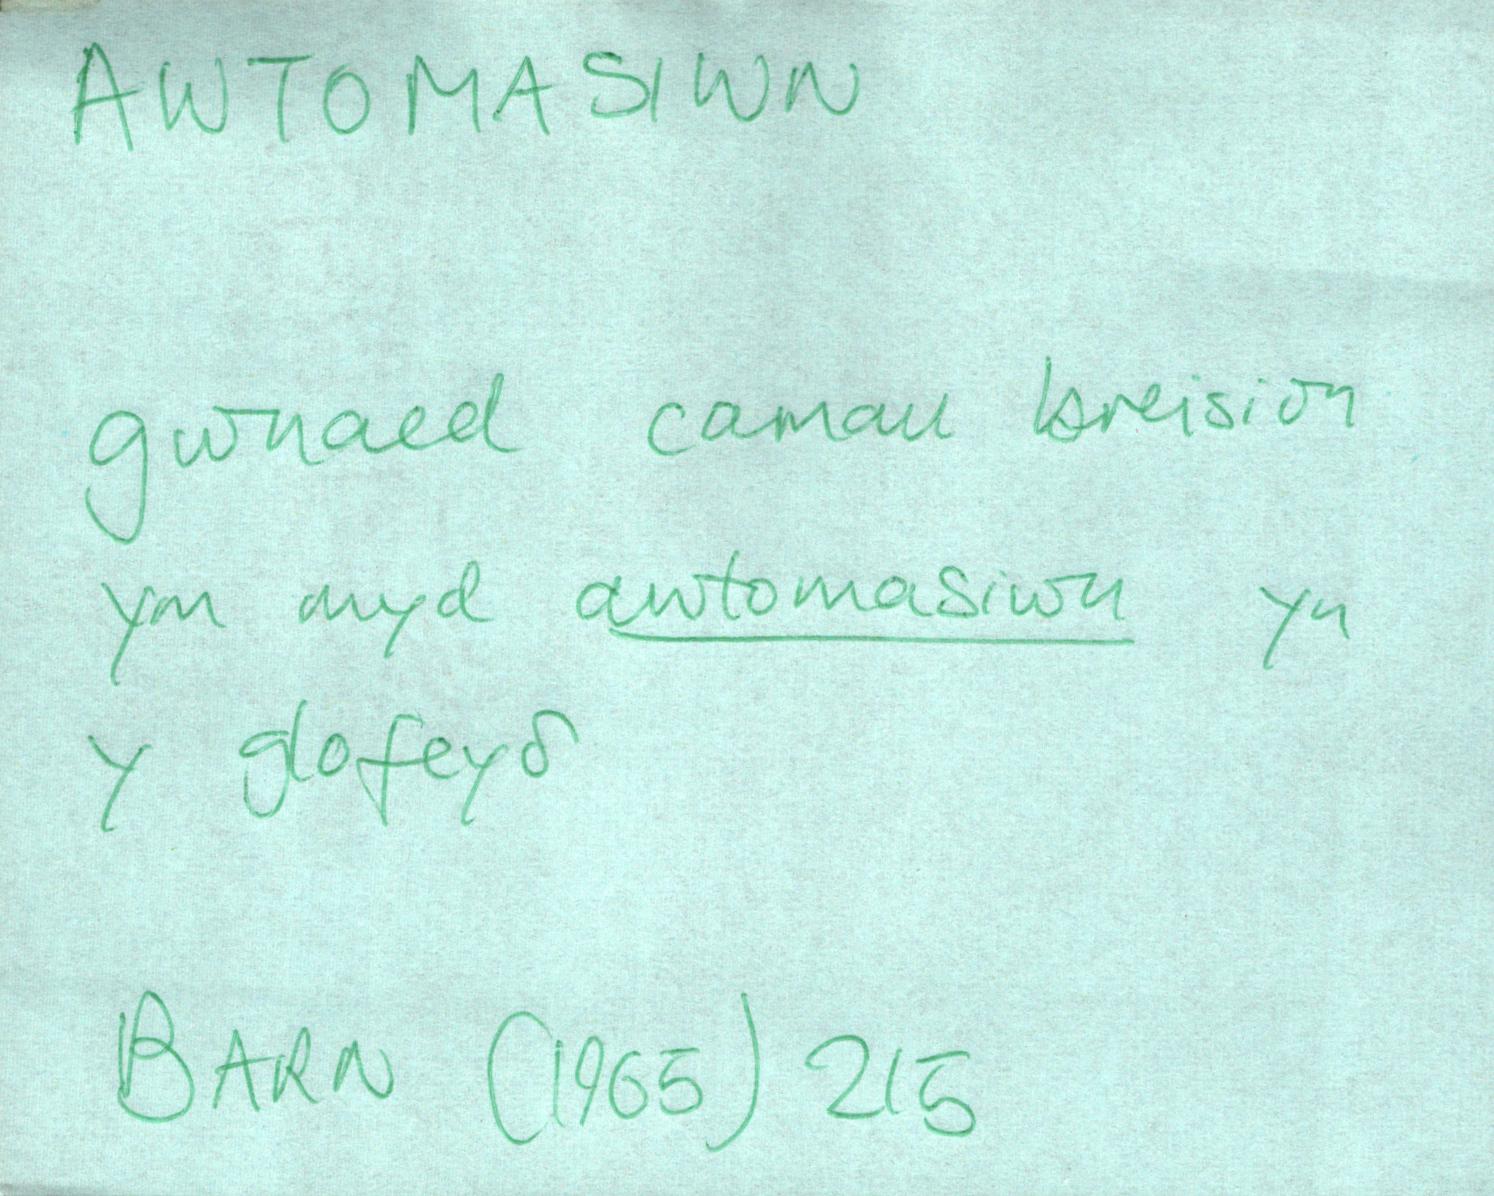 AWTOMASIWN
gwnaed camau breision
ym myd awtomasiwn yn
y glofeyδ
BARN (1965) 215